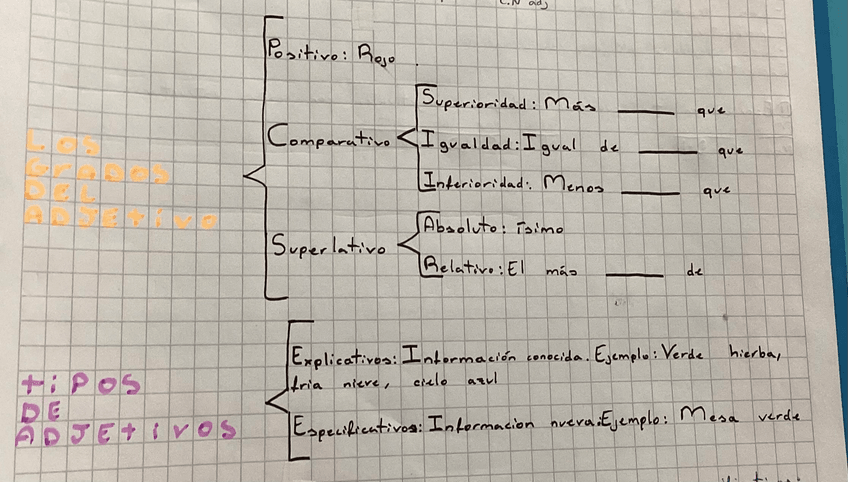 C.N adj
Positivo: Rojo
LOS
GRADOS
DEL
ADJETIVO
Comparativo
Superioridad: Más ______ que
Igualdad: Igual de ______ que
Inferioridad: Menos ______ que
Superlativo
Absoluto: ísimo
Relativo: El más ______ de
tiPOS
DE
ADJEtivOS
Explicativos: Información conocida. Ejemplo: Verde hierba,
fria nieve, cielo azul
Especificativos: Informacion nueva. Ejemplo: Mesa verde